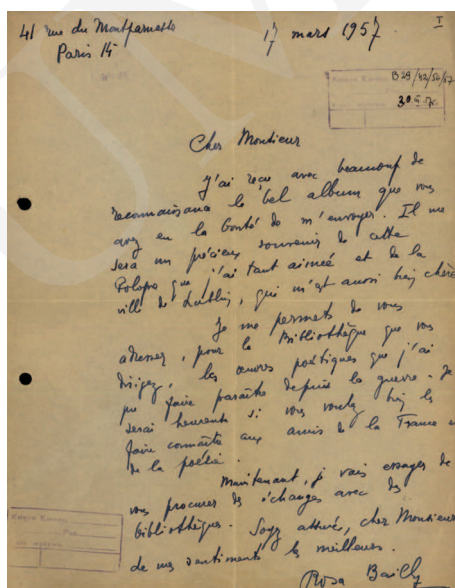 41 rue du Montparnasse
Paris 14
17 mars 1957.
I
B 29/42/56/57
30.
Cher Monsieur
J'ai reçu avec beaucoup de
reconnaissance le bel album que vous
avez eu la bonté de m'envoyer. Il me
sera un précieux souvenir de cette
Pologne que j'ai tant aimée et de la
ville de Lublin, qui m'est aussi bien chère
Je me permets de vous
adresser, pour la Bibliothèque que vous
dirigez, les œuvres poétiques que j'ai
pu faire paraître depuis la guerre. Je
serai heureuse si vous voulez bien les
faire connaître aux amis de la France et
de la poésie.
Maintenant, je vais essayer de
vous procurer des échanges avec des
bibliothèques. Soyez assuré, cher Monsieur
de mes sentiments les meilleurs.
Rosa Bailly